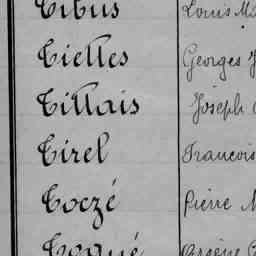 Titus Louis M
Tielles Georges J
Tillais Joseph
Tirel Francois
Toczé Pierre M
Toqué Arsène